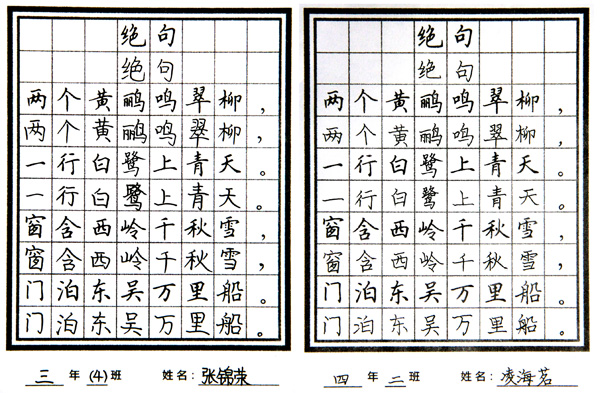 绝句
绝句
两个黄鹂鸣翠柳，
两个黄鹂鸣翠柳，
一行白鹭上青天。
一行白鹭上青天。
窗含西岭千秋雪，
窗含西岭千秋雪，
门泊东吴万里船。
门泊东吴万里船。
三年(4)班 姓名：张锦荣
绝句
绝句
两个黄鹂鸣翠柳，
两个黄鹂鸣翠柳，
一行白鹭上青天。
一行白鹭上青天。
窗含西岭千秋雪，
窗含西岭千秋雪，
门泊东吴万里船。
门泊东吴万里船。
四年二班 姓名：凌海茗